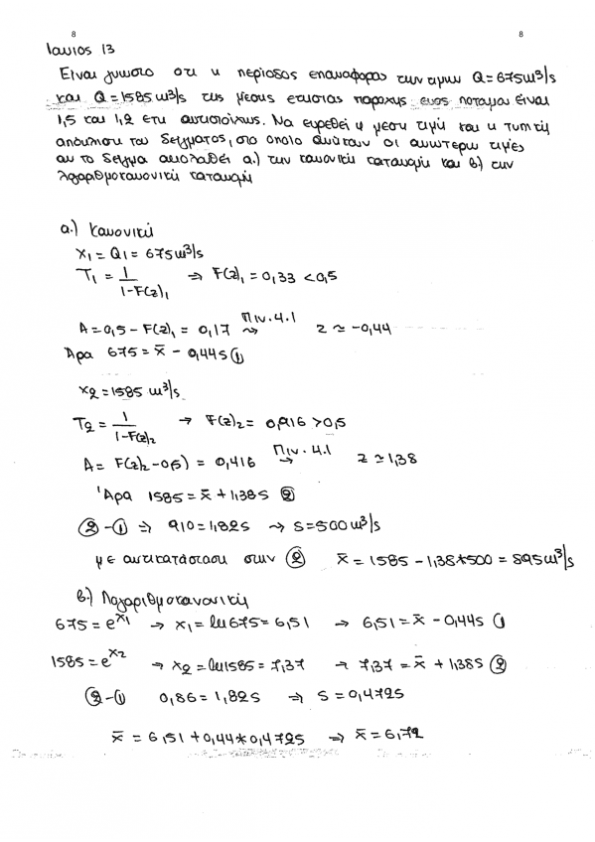 8 8
Ιανιος 13
Είναι γνωστο οτι η περίοδος επαναφορας των τιμων Q=675m³/s
και Q=1585m³/s της μεσης ετησιας παροχης ενος ποταμου είναι
1,5 και 1,2 ετη αντιστοίχως. Να ευρεθεί η μεση τιμή και η τυπική
απόκλιση του δείγματος, στο οποίο ανήκουν οι ανωτερω τιμές
αν το δείγμα ακολουθεί α.) την κανονική κατανομή και β) την
λογαριθμοκανονική κατανομή
α.) Κανονική
x₁ = Q₁ = 675m³/s
T₁ = 1/(1-F(z)₁) ⇒ F(z)₁ = 0,33 < 0,5
A = 0,5 - F(z)₁ = 0,17 Πιν. 4.1 → z ≃ -0,44
Άρα 675 = x̄ - 0,44s ①
x₂ = 1585 m³/s
T₂ = 1/(1-F(z)₂) → F(z)₂ = 0,916 > 0,5
A = F(z)₂-0,5) = 0,416 Πιν. 4.1 → z ≃ 1,38
Άρα 1585 = x̄ + 1,38s ②
② - ① ⇒ 910 = 1,82s → s = 500m³/s
με αντικατάσταση στην ② x̄ = 1585 - 1,38*500 = 895m³/s
β.) Λογαριθμοκανονική
675 = e^x₁ → x₁ = ln675 = 6,51 → 6,51 = x̄ - 0,44s ①
1585 = e^x₂ → x₂ = ln1585 = 7,37 → 7,37 = x̄ + 1,38s ②
② - ① 0,86 = 1,82s ⇒ s = 0,4725
x̄ = 6,51 + 0,44*0,4725 ⇒ x̄ = 6,72